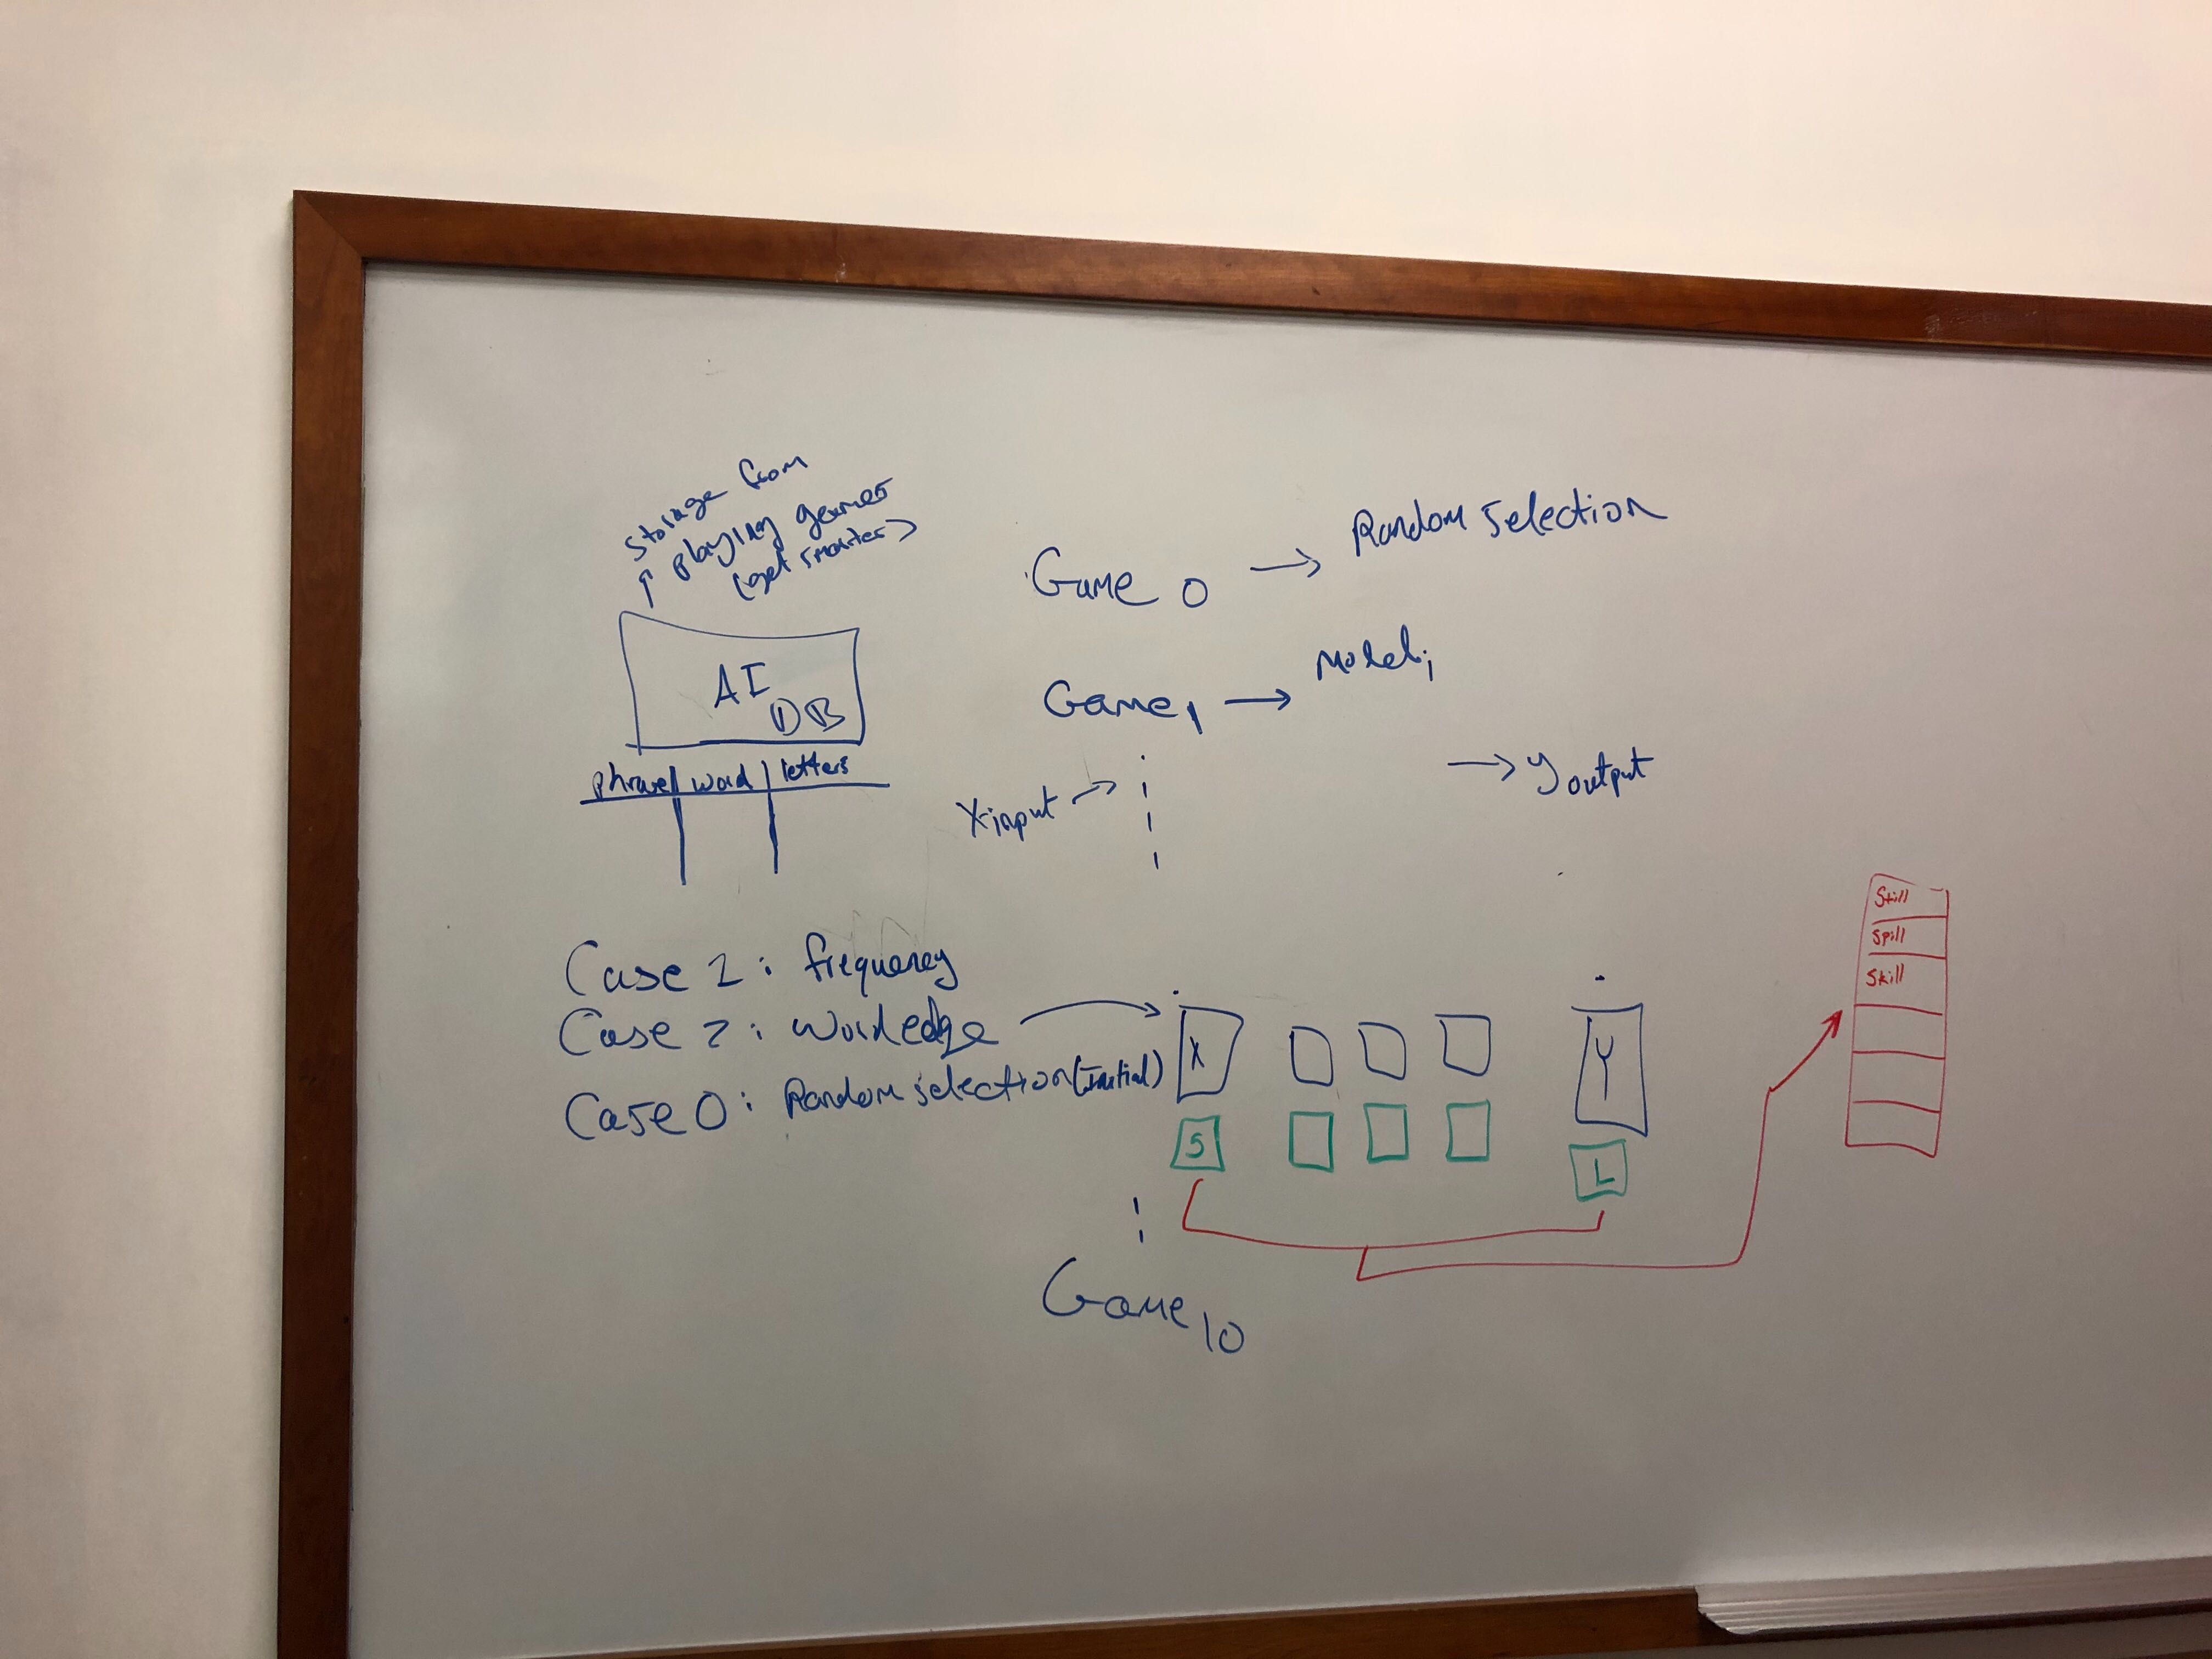 Storage from
playing games
(get smarter)
AI
DB
phrase word letters
Game 0 → Random Selection
Game 1 → Model i
X-input →
→ y output
Case 1: frequency
Case 2: Word edge
Case 0: Random selection (Initial)
X Y
S L
Still
Spill
Skill
Game 10